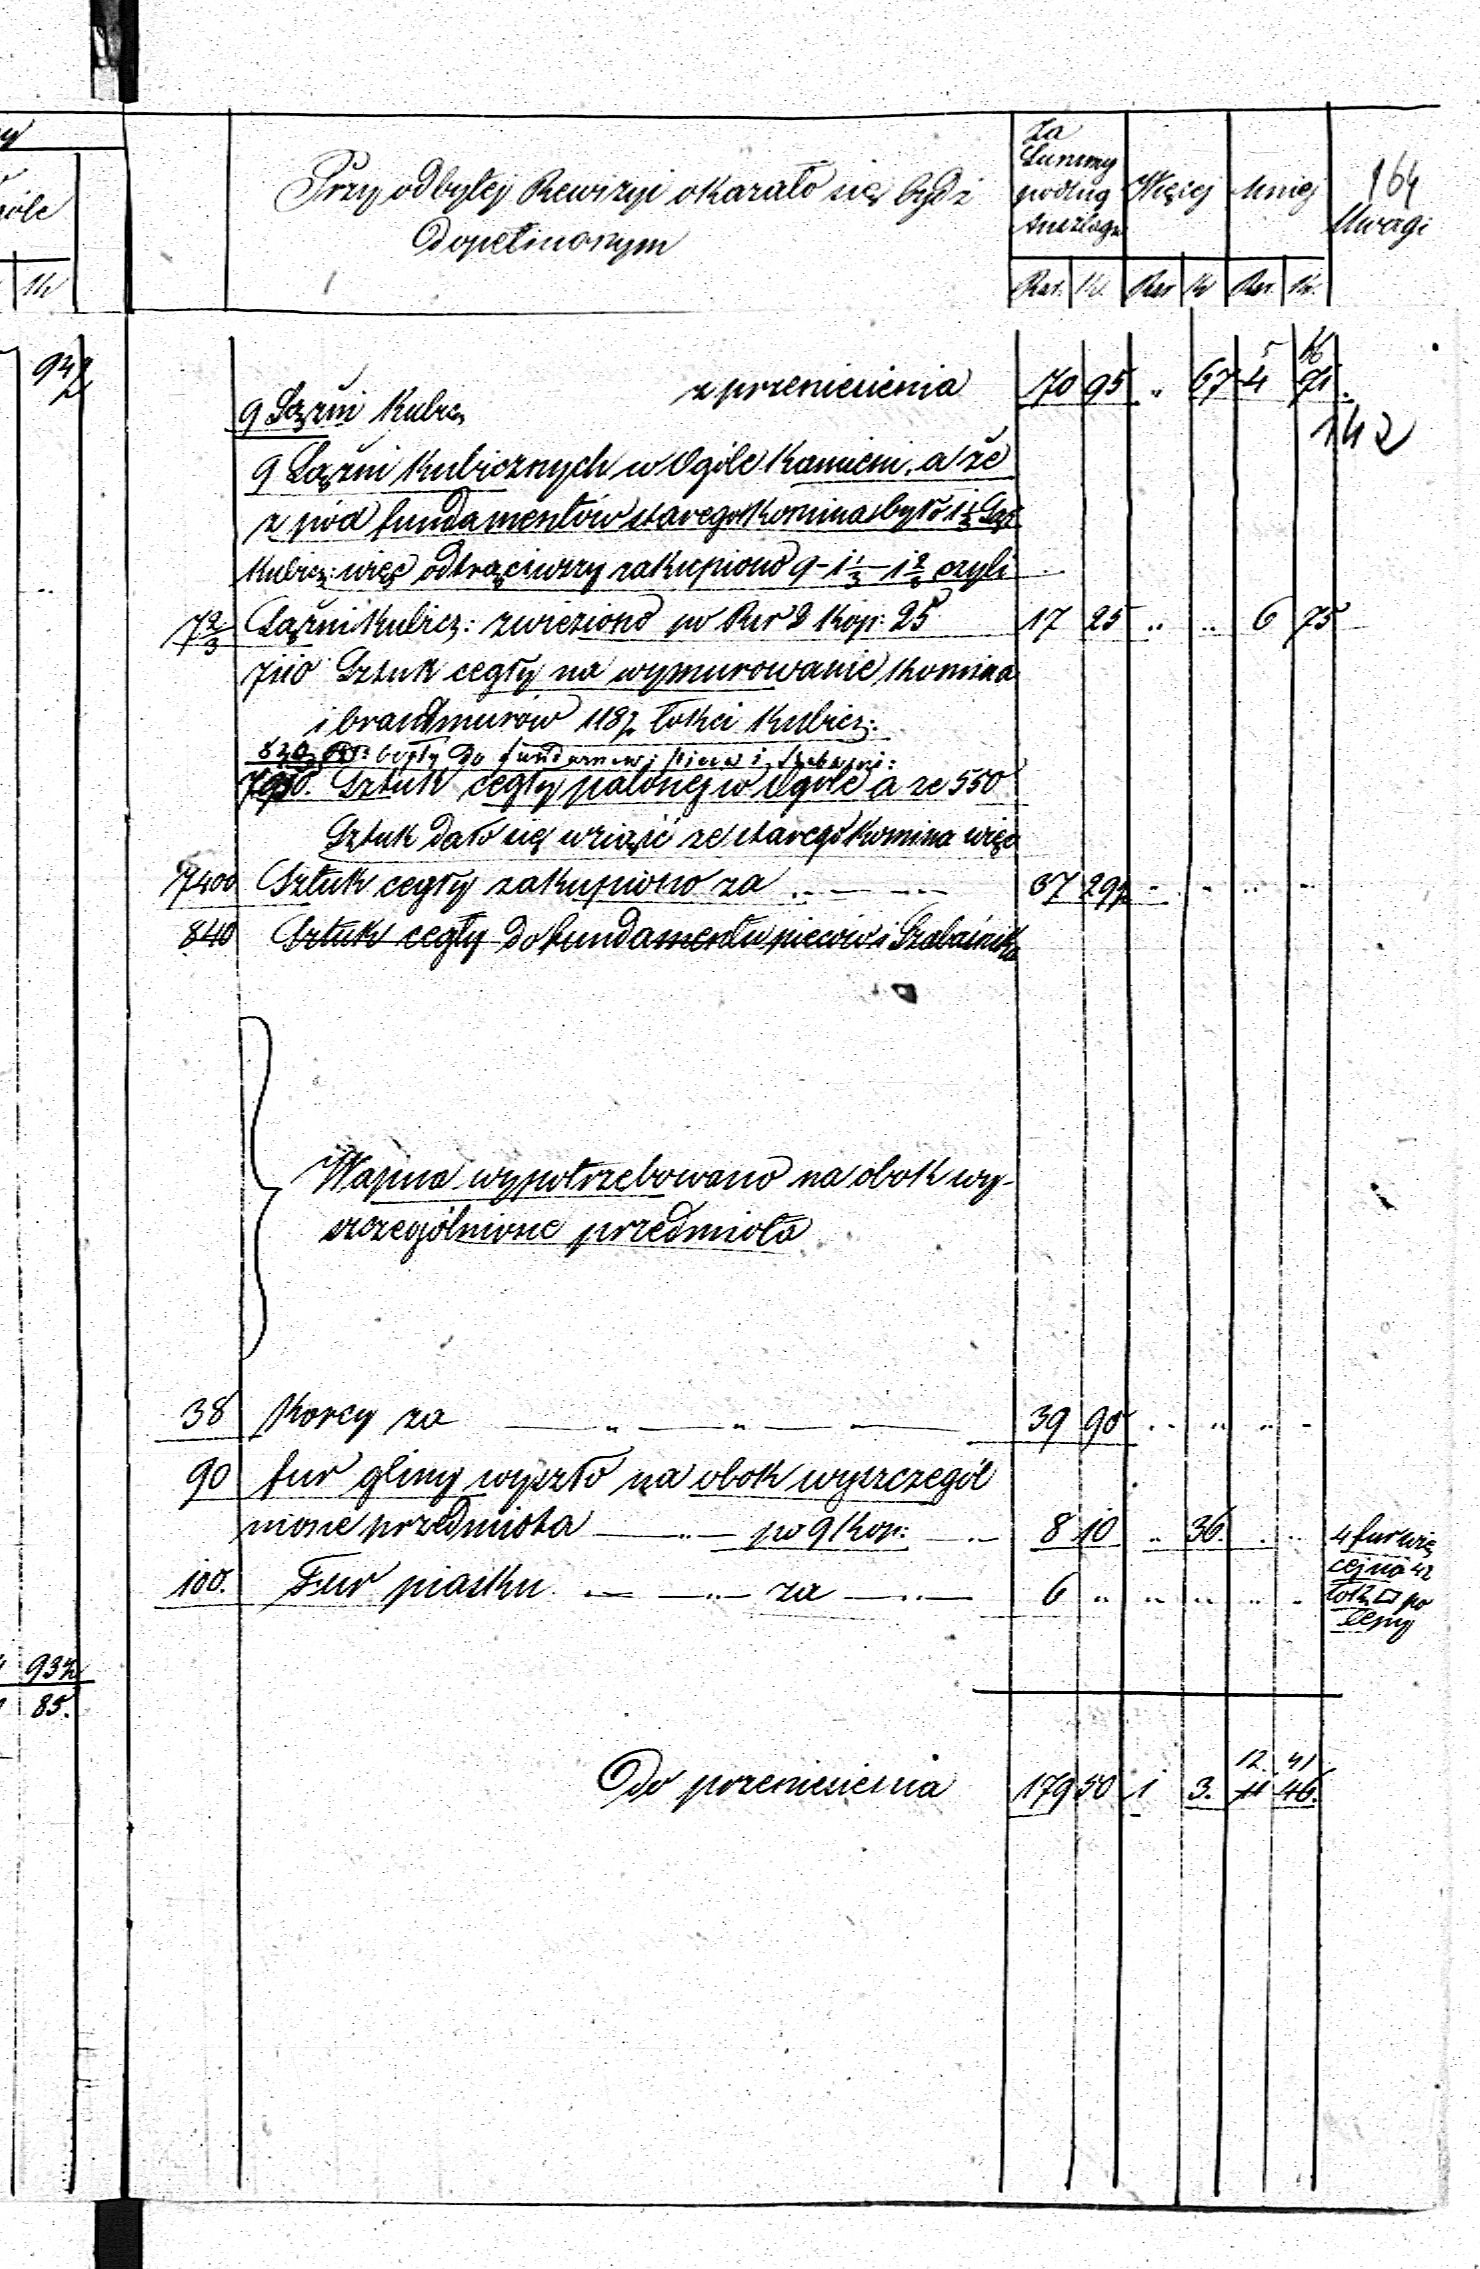 Przy odbytej Rewizyi okazało się bydź
Dopełnionym
Za
Summy
podług
Anszlagu
Więcej
Mniej
164
Uwagi
Rsr. K. Rsr K Rsr. K.
ogóle
K
z przeniesienia 70 95 .. 67 4 91
5 16
142
9 Sążni Kubicz
9 Sążni Kubicznych w Ogóle Kamieni, a że
z pod fundamentów starego Komina było 1 1/3 Sąż
Kubicz: więc odtrąciwszy zakupiono 9 - 1 1/3 czyli
7 2/3 Sążni Kubicz: zwieziono po Rsr 2 Kop: 25 17 25 .. .. 6 75
7110 Sztuk cegły na wymurowanie Komina
i brandmurów 118 1/2 łokci Kubicz:
840 cegły do fundamen: pieca i
7950. Sztuk cegły palonej w Ogóle a że 550
Sztuk dało się wziąść ze starego Komina więc
7400 Sztuk cegły zakupiono za .. — — 37 29 1/2
840 Sztuk cegły do fundamentu pieców i Szabaśnika
Wapna wypotrzebowano na obok wy-
szczególnione przedmiota
38 Korcy za — " — " — 39 90
90 fur gliny wyszło na obok wyszczegól
nione przedmiota — " — po 9 Kop: 8 10 .. 36.
4 fur wię
cej na 42
łok □ po
lepy
100. Fur piasku — " — za — " — 6 ..
93 1/2
85.
Do przeniesienia 179 50 1 3. 11 46.
12. 41